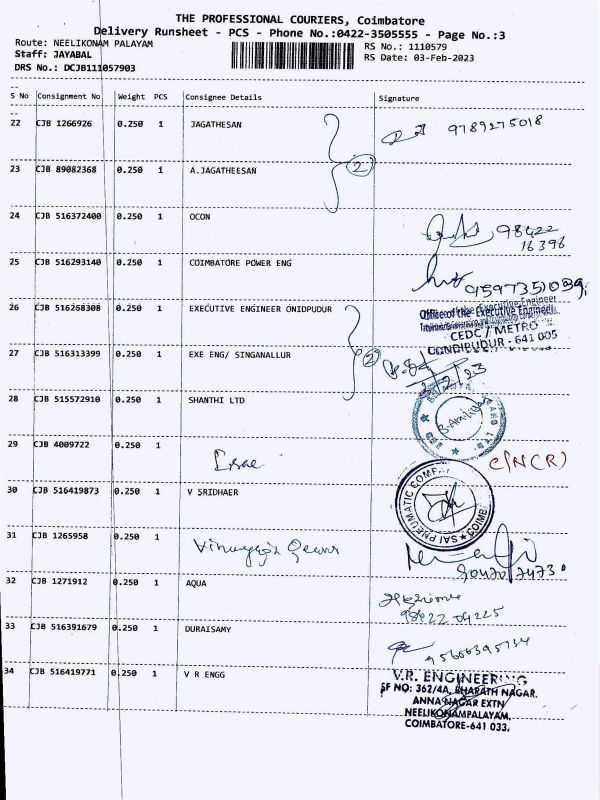 THE PROFESSIONAL COURIERS, Coimbatore
Delivery Runsheet - PCS - Phone No.:0422-3505555 - Page No.:3
Route: NEELIKONAM PALAYAM
RS No.: 1110579
Staff: JAYABAL
RS Date: 03-Feb-2023
DRS No.: DCJB111057903
S No Consignment No Weight PCS Consignee Details Signature
22 CJB 1266926 0.250 1 JAGATHESAN 9789275018
23 CJB 89082368 0.250 1 A.JAGATHEESAN
2
24 CJB 516372400 0.250 1 OCON 98422
16396
25 CJB 516293140 0.250 1 COIMBATORE POWER ENG 9597351039
26 CJB 516268308 0.250 1 EXECUTIVE ENGINEER ONIDPUDUR
Office of the Executive Engineer
CEDC / METRO
ONDIPUDUR - 641 005
27 CJB 516313399 0.250 1 EXE ENG/ SINGANALLUR
2
3/2/23
28 CJB 515572910 0.250 1 SHANTHI LTD
29 CJB 4009722 0.250 1
C/N(R)
30 CJB 516419873 0.250 1 V SRIDHAER
SAI PNEUMATIC COMPA
COIMB
31 CJB 1265958 0.250 1
32 CJB 1271912 0.250 1 AQUA
98422 04225
33 CJB 516391679 0.250 1 DURAISAMY
34 CJB 516419771 0.250 1 V R ENGG
V.R. ENGINEERING
SF NO: 362/4A, BHARATH NAGAR,
ANNA NAGAR EXTN
NEELIKONAMPALAYAM,
COIMBATORE-641 033.